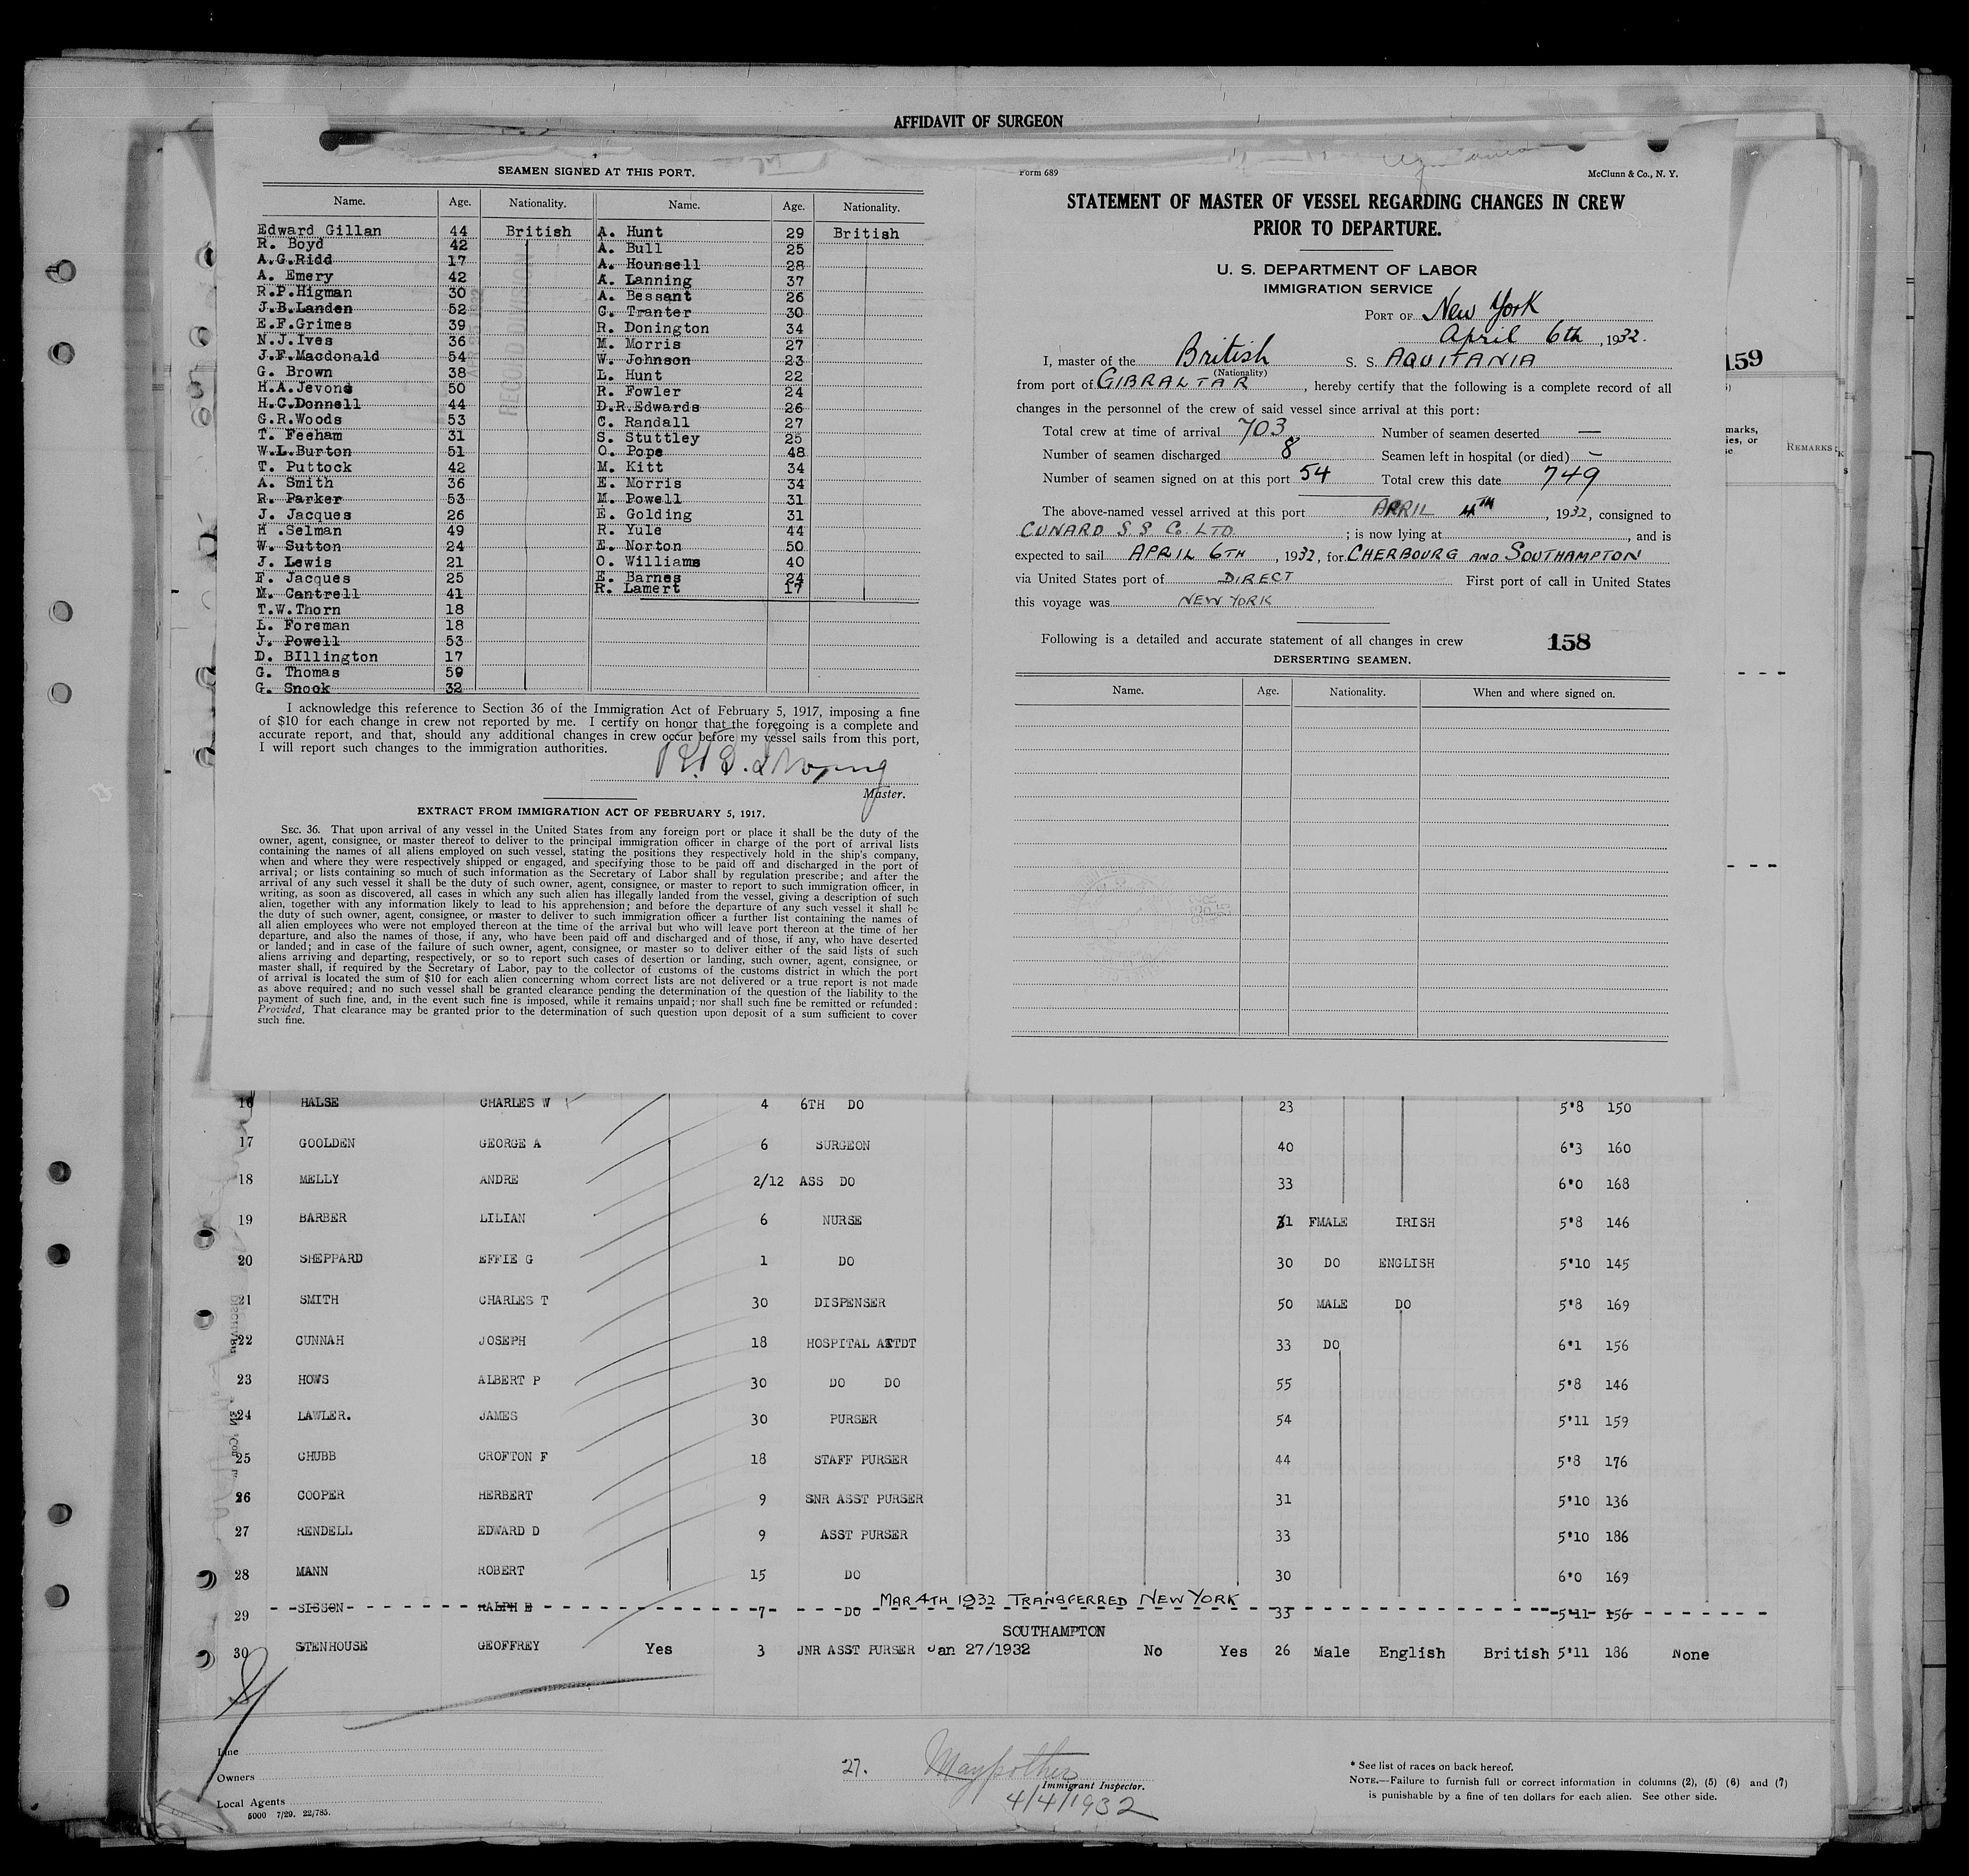 AFFIDAVIT OF SURGEON
SEAMEN SIGNED AT THIS PORT.
Name. Age. Nationality. Name. Age. Nationality.
Edward Gillan 44 British A. Hunt 29 British
R. Boyd 42 A. Bull 25
A.G.Ridd 17 A. Hounsell 28
A. Emery 42 A. Lanning 37
R.P.Higman 30 A. Bessant 26
J.B.Landen 52 C. Tranter 30
E.F.Grimes 39 R. Donington 34
N.J.Ives 36 M. Morris 27
J.F.Macdonald 54 W. Johnson 23
G. Brown 38 L. Hunt 22
H.A.Jevons 50 R. Fowler 24
H.C.Donnell 44 D.R.Edwards 26
G.R.Woods 53 C. Randall 27
T. Feeham 31 S. Stuttley 25
W.L.Burton 51 O. Pope 48
T. Puttock 42 M. Kitt 34
A. Smith 36 E. Morris 34
R. Parker 53 M. Powell 31
J. Jacques 26 E. Golding 31
H .Selman 49 R. Yule 44
W. Sutton 24 E. Norton 50
J. Lewis 21 O. Williams 40
F. Jacques 25 E. Barnes 24
M. Cantrell 41 R. Lamert 17
T.W.Thorn 18
L. Foreman 18
J. Powell 53
D. BIllington 17
G. Thomas 59
G. Snook 32
I acknowledge this reference to Section 36 of the Immigration Act of February 5, 1917, imposing a fine
of $10 for each change in crew not reported by me. I certify on honor that the foregoing is a complete and
accurate report, and that, should any additional changes in crew occur before my vessel sails from this port,
I will report such changes to the immigration authorities.
Master.
EXTRACT FROM IMMIGRATION ACT OF FEBRUARY 5, 1917.
SEC. 36. That upon arrival of any vessel in the United States from any foreign port or place it shall be the duty of the
owner, agent, consignee, or master thereof to deliver to the principal immigration officer in charge of the port of arrival lists
containing the names of all aliens employed on such vessel, stating the positions they respectively hold in the ship's company,
when and where they were respectively shipped or engaged, and specifying those to be paid off and discharged in the port of
arrival; or lists containing so much of such information as the Secretary of Labor shall by regulation prescribe; and after the
arrival of any such vessel it shall be the duty of such owner, agent, consignee, or master to report to such immigration officer, in
writing, as soon as discovered, all cases in which any such alien has illegally landed from the vessel, giving a description of such
alien, together with any information likely to lead to his apprehension; and before the departure of any such vessel it shall be
the duty of such owner, agent, consignee, or master to deliver to such immigration officer a further list containing the names of
all alien employees who were not employed thereon at the time of the arrival but who will leave port thereon at the time of her
departure, and also the names of those, if any, who have been paid off and discharged and of those, if any, who have deserted
or landed; and in case of the failure of such owner, agent, consignee, or master so to deliver either of the said lists of such
aliens arriving and departing, respectively, or so to report such cases of desertion or landing, such owner, agent, consignee, or
master shall, if required by the Secretary of Labor, pay to the collector of customs of the customs district in which the port
of arrival is located the sum of $10 for each alien concerning whom correct lists are not delivered or a true report is not made
as above required; and no such vessel shall be granted clearance pending the determination of the question of the liability to the
payment of such fine, and, in the event such fine is imposed, while it remains unpaid; nor shall such fine be remitted or refunded:
Provided, That clearance may be granted prior to the determination of such question upon deposit of a sum sufficient to cover
such fine.
Form 689 McClunn & Co., N. Y.
STATEMENT OF MASTER OF VESSEL REGARDING CHANGES IN CREW
PRIOR TO DEPARTURE.
U. S. DEPARTMENT OF LABOR
IMMIGRATION SERVICE
PORT OF New York
April 6th, 1932.
I, master of the British S. S. AQUITANIA
(Nationality)
from port of GIBRALTAR, hereby certify that the following is a complete record of all
changes in the personnel of the crew of said vessel since arrival at this port:
Total crew at time of arrival 703 Number of seamen deserted —
Number of seamen discharged 8 Seamen left in hospital (or died) —
Number of seamen signed on at this port 54 Total crew this date 749
The above-named vessel arrived at this port APRIL 4TH, 1932, consigned to
CUNARD S.S Co. LTD; is now lying at, and is
expected to sail APRIL 6TH, 1932, for CHERBOURG AND SOUTHAMPTON
via United States port of DIRECT First port of call in United States
this voyage was NEW YORK
Following is a detailed and accurate statement of all changes in crew 158
DERSERTING SEAMEN.
Name. Age. Nationality. When and where signed on.
159
REMARKS
16 HALSE CHARLES W 4 6TH DO 23 5'8 150
17 GOOLDEN GEORGE A 6 SURGEON 40 6'3 160
18 MELLY ANDRE 2/12 ASS DO 33 6'0 168
19 BARBER LILIAN 6 NURSE 31 FMALE IRISH 5'8 146
20 SHEPPARD EFFIE G 1 DO 30 DO ENGLISH 5'10 145
21 SMITH CHARLES T 30 DISPENSER 50 MALE DO 5'8 169
22 CUNNAH JOSEPH 18 HOSPITAL ATTDT 33 DO 6'1 156
23 HOWS ALBERT P 30 DO DO 55 5'8 146
24 LAWLER. JAMES 30 PURSER 54 5'11 159
25 CHUBB CROFTON F 18 STAFF PURSER 44 5'8 176
26 COOPER HERBERT 9 SNR ASST PURSER 31 5'10 136
27 RENDELL EDWARD D 9 ASST PURSER 33 5'10 186
28 MANN ROBERT 15 DO 30 6'0 169
MAR 4TH 1932 TRANSFERRED NEW YORK
29 SISSON RALPH E 7 DO 33 5'11 156
SOUTHAMPTON
30 STENHOUSE GEOFFREY Yes 3 JNR ASST PURSER Jan 27/1932 No Yes 26 Male English British 5'11 186 None
Line
Owners
Local Agents
5000 7/29. 22/785.
27.
Immigrant Inspector.
4/4/1932
* See list of races on back hereof.
NOTE.—Failure to furnish full or correct information in columns (2), (5) (6) and (7)
is punishable by a fine of ten dollars for each alien. See other side.